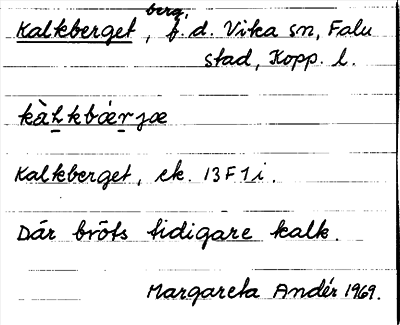 Kalkberget, berg, f. d. Vika sn, Falu
stad, Kopp. l.
kàḻkbæ̀ṟjæ
Kalkberget, ek. 13 F 1 i.
Där bröts tidigare kalk.
Margareta Andér 1969.